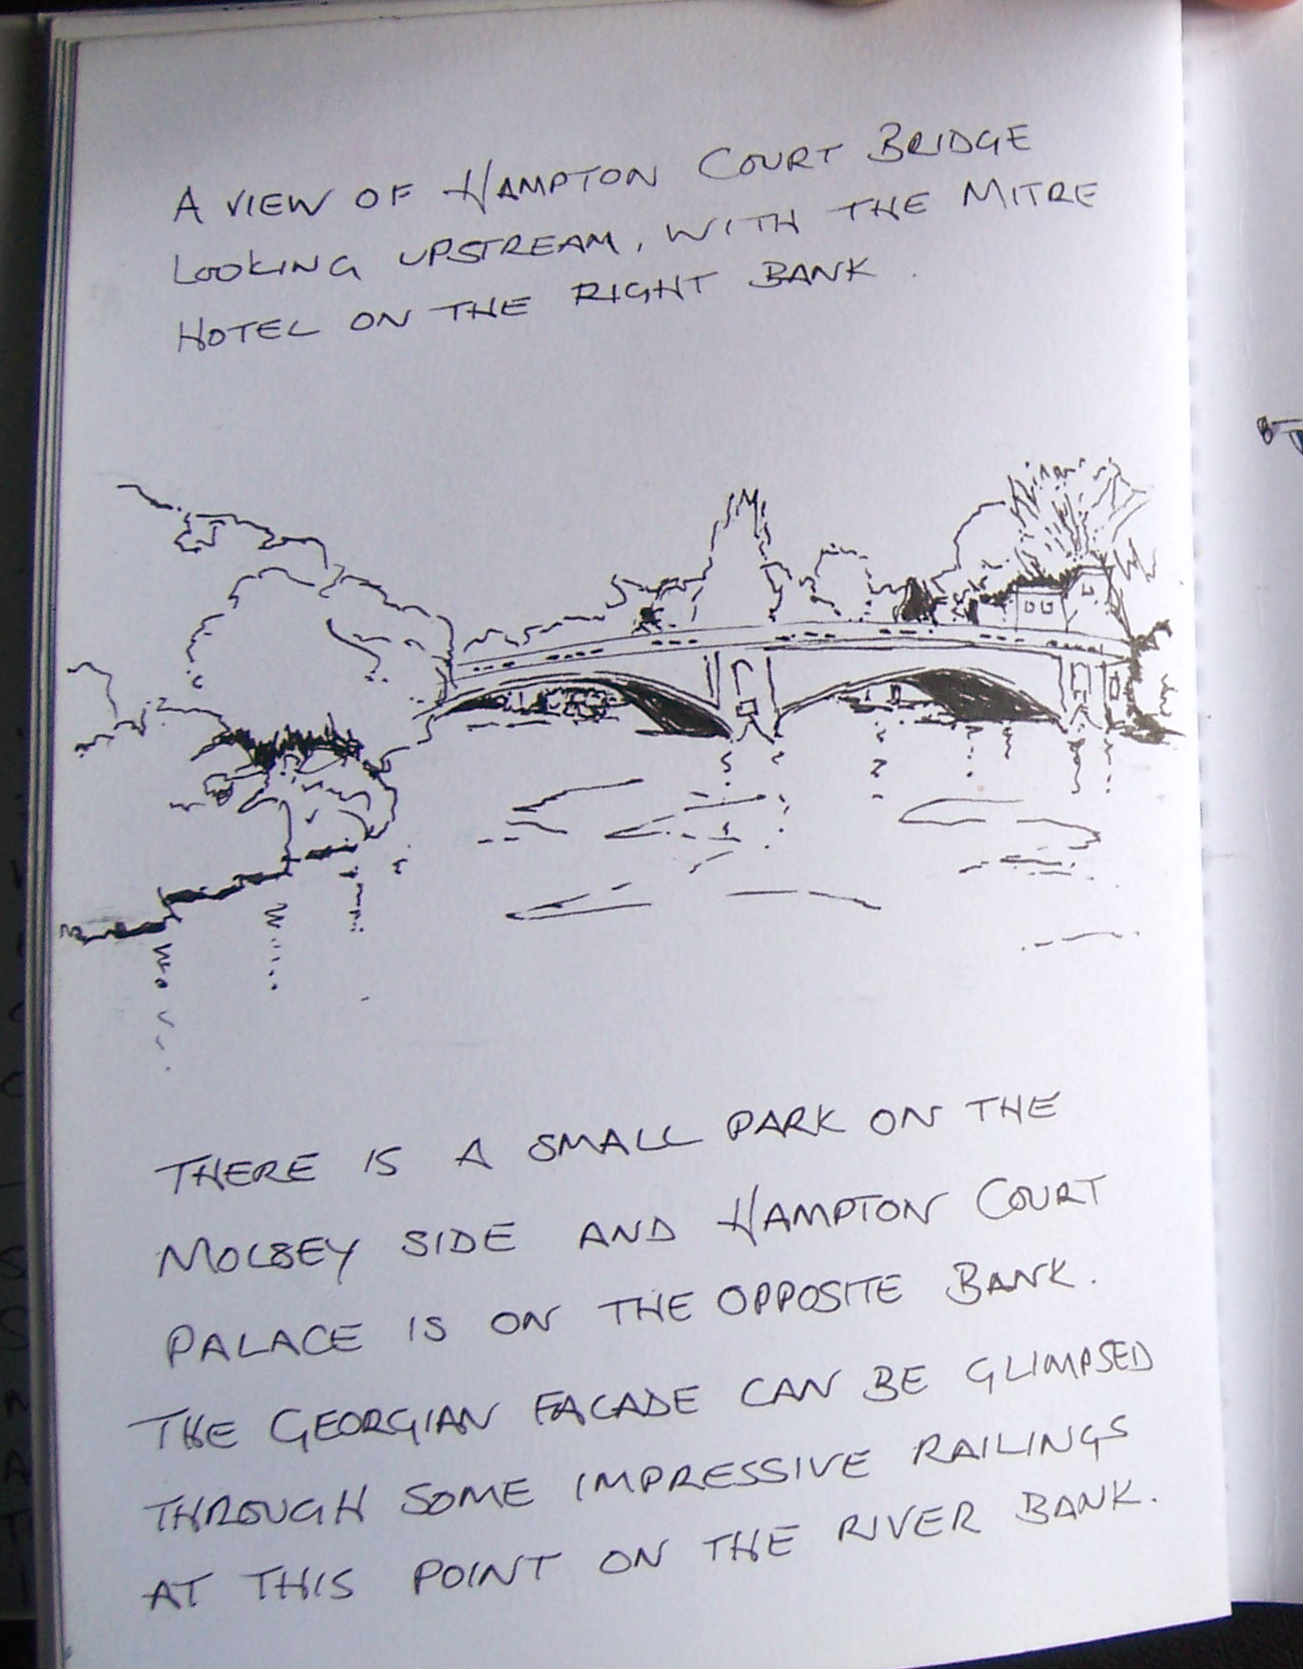 A VIEW OF HAMPTON COURT BRIDGE
LOOKING UPSTREAM, WITH THE MITRE
HOTEL ON THE RIGHT BANK.
THERE IS A SMALL PARK ON THE
MOLSEY SIDE AND HAMPTON COURT
PALACE IS ON THE OPPOSITE BANK.
THE GEORGIAN FACADE CAN BE GLIMPSED
THROUGH SOME IMPRESSIVE RAILINGS
AT THIS POINT ON THE RIVER BANK.